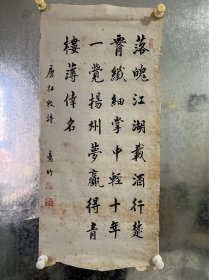 落魄江湖載酒行楚
纖細掌中輕十年
一覺揚州夢贏得青
樓薄倖名
唐杜牧詩